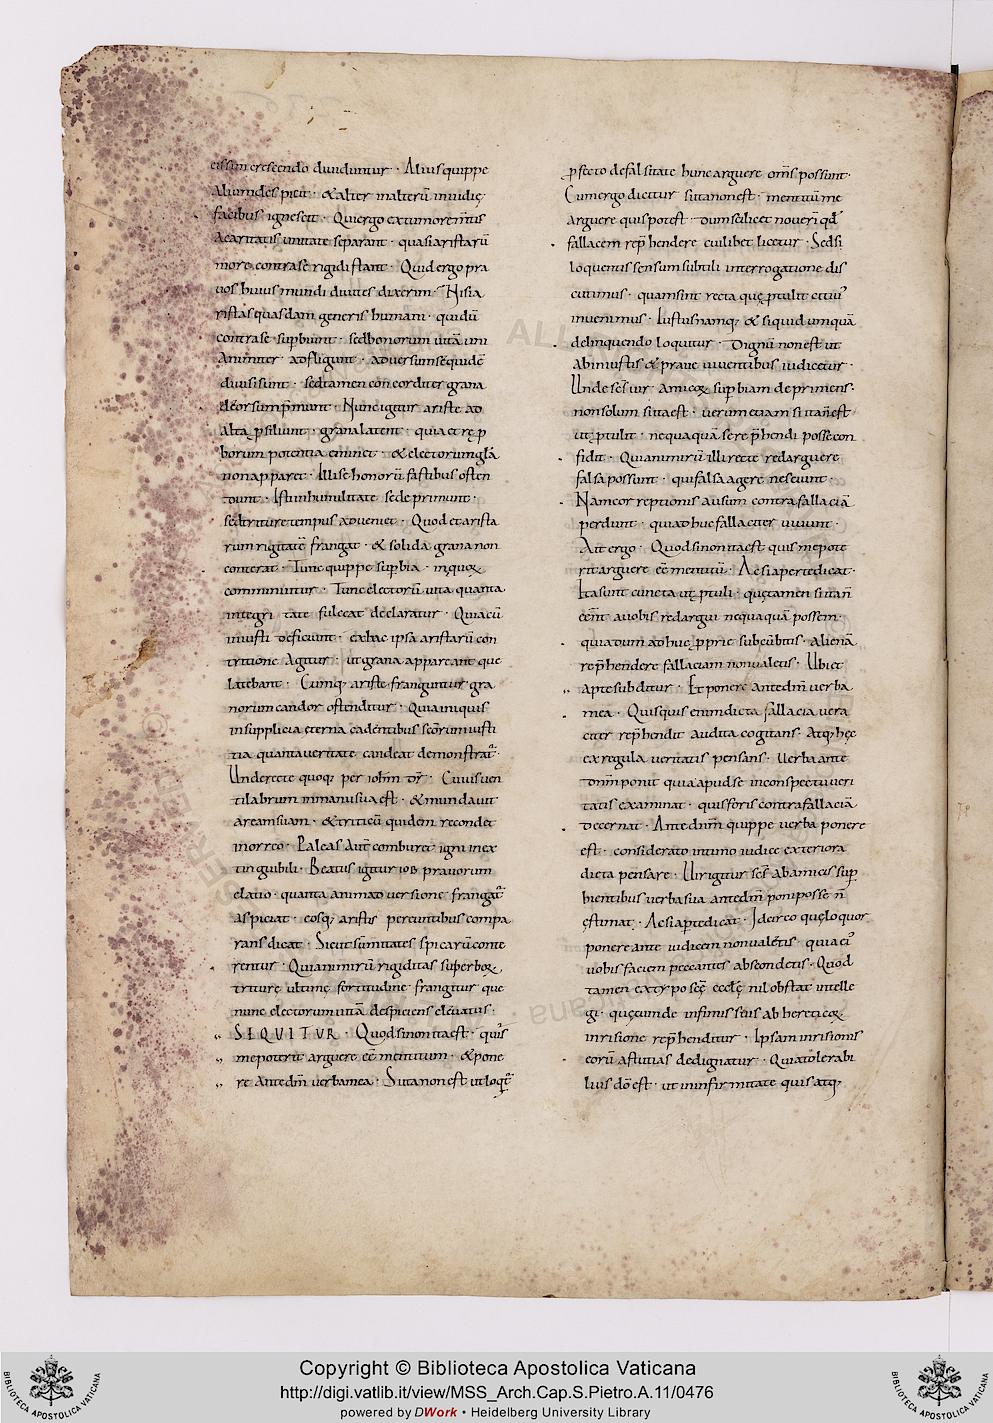 cissim crescendo diuiduntur · Alius quippe
alium despicit · & alter in alterū inuidię
facibus ignescit · Qui ergo ex tumore m̄tis
a caritatis unitate separant · quasi aristarū
more contra se rigidi stant · Quid ergo pra
uos huius mundi diuites dixerim · Nisi a
ristas quasdam generis humani · qui dū
contra se supbiunt · sed bonorum uitā uni
animiter adfligunt · aduersum se quidē
diuisi sunt · sed tamen concorditer grana
deorsum p̄munt · Nunc igitur ariste ad
alta ꝓsiliunt · grana latent · quia et rep
borum potentia eminet · & electorum glā
non apparet · Illi se honorū fastibus osten
dunt · Isti in humilitate se deprimunt ·
sed triturę tempus adueniet · Quod et arista
rum rigitatē frangat · & solida grana non
conterat · Tunc quippe supbia · iniquoꝝ
comminuitur · Tunc electorū uita quanta
integri tate fulceat declaratur · Quia cū
iniusti deficiunt · ex hac ipsa aristarū con
tritione agitur · ut grana appareant que
latebant · Cumq; ariste franguntur gra
norum candor ostenditur · Quia iniquis
in supplicia eterna cadentibus scōrum iusti
tia quanta ueritate candeat demonstrat̄ ·
Unde recte quoq; per iohm̄ dr̄ · Cuius uen
tilabrum in manu sua est · & mundauit
aream suam · & triticū quidem recondet
in orreo · Paleas aut̄ comburet igni inex
tinguibili · Beatus igitur iob prauorum
elatio · quanta animaduersione frangat̄
aspiciat · eosq; aristis pereuntibus compa
rans dicat · Sicut sūmitates spicarū conte
rentur · Quia nimirū rigiditas superboꝝ
triturę ultimę fortitudine frangitur que
nunc electorum uitā despiciens eleuatus ·
SEQUITUR · Quod si non ita est · quis
me poterit arguere eē mentitum · & pone
re ante dm̄ uerba mea · Si ita non est ut loqt̄
ꝓfecto de falsitate hunc arguere om̄s possunt ·
Cum ergo dicitur si ita non est · mentitū me
arguere quis potest · dum scilicet nouerī qd
fallacem rep̄hendere cuilibet licetur · Sed si
loquentis sensum subtili interrogatione dis
cutimus · quam sint recta quę ꝓtulit citiuˢ
inuenimus · Iustus namq; & si quid umquā
delinquendo loquitur · Dignū non est ut
ab iniustis & praue uiuentibus iudicetur ·
Unde scs̄ uir amicoꝝ supbiam deprimens ·
non solum si ita est · uerum etiam si ita n̄ est
ut ꝓtulit · nequaquā se rep̄hendi posse con
fidit · Quia nimirū illi recte redarguere
falsa possunt · qui falsa agere nesciunt ·
Nam correptionis ausum contra fallaciā
perdunt · qui adhuc fallaciter uiuunt ·
Ait ergo · Quod si non ita est quis me pote
rit arguere eē mentitū · Ac si aperte dicat ·
Ita sunt cuncta ut ꝓtuli · quę tamen si ita n̄
eēnt a uobis redargui nequaquā possem ·
quia dum adhuc ꝓprie subcūbitis · alienā
rep̄hendere fallaciam non ualetis · Ubi et
apte subditur · Et ponere ante dm̄ uerba
mea · Quisquis enim dicta fallacia uera
citer rep̄hendit audita cogitans · atq; hęc
ex regula ueritatis pensans · Uerba ante
dominum ponit quia apud se in conspectu ueri
tatis examinat · quis foris contra fallaciā
decernat · Ante dnm̄ quippe uerba ponere
est · considerato intimo iudice exteriora
dicta pensare · Uir igitur scs̄ ab amicis sup
bientibus uerba sua ante dm̄ poni posse n̄
ęstimat · Ac si apte dicat · Idcirco quę loquor
ponere ante iudicem non ualetis · quia ei'
uobis faciem peccantes absconditis · Quod
tamen ex typo scę ecclę nil obstat intelle
gi · quę cum de infimis suis ab hereticoꝝ
inrisione rep̄henditur · Ipsam inrisionis
eorū astutias dedignatur · Quia tolerabi
lius dō est · ut in infirmitate quis atq;
Copyright © Biblioteca Apostolica Vaticana
http://digi.vatlib.it/view/MSS_Arch.Cap.S.Pietro.A.11/0476
powered by DWork • Heidelberg University Library
BIBLIOTECA APOSTOLICA VATICANA
BIBLIOTECA APOSTOLICA VATICANA